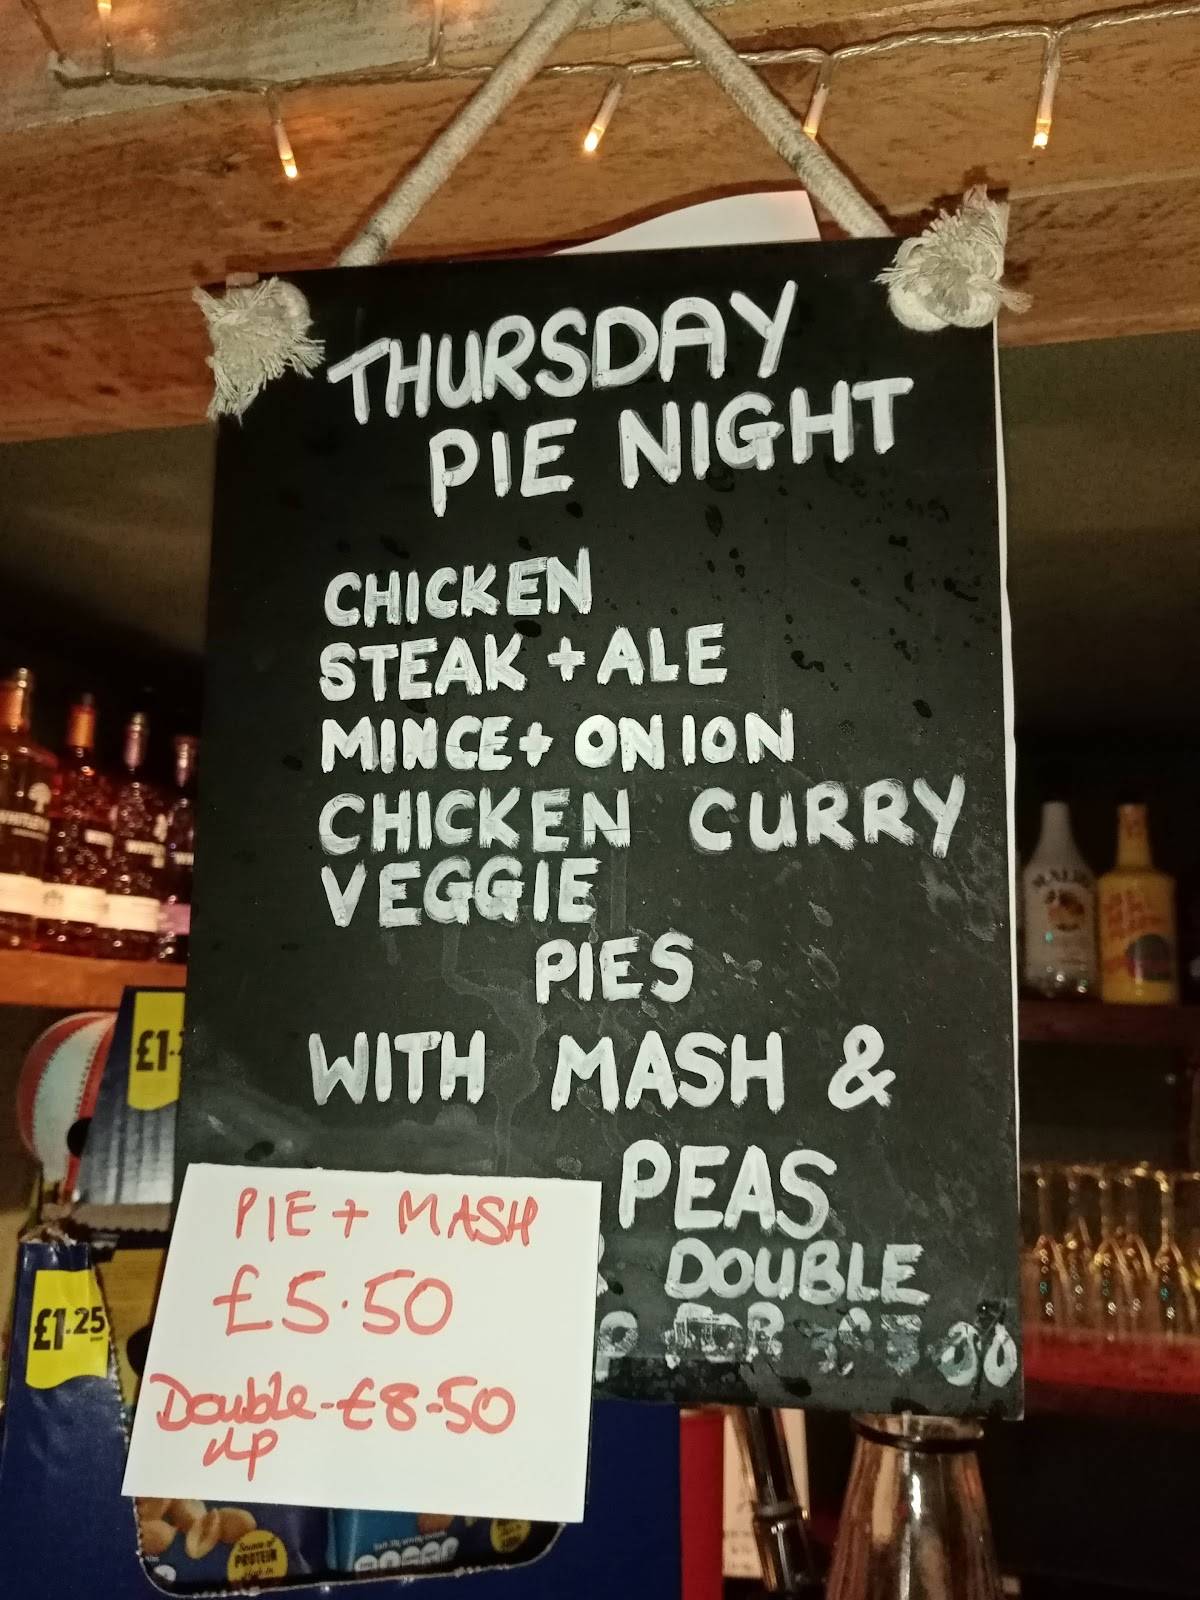 THURSDAY
PIE NIGHT
CHICKEN
STEAK + ALE
MINCE + ONION
CHICKEN CURRY
VEGGIE
PIES
WITH MASH &
PEAS
DOUBLE
FOR
PIE + MASH
£5.50
Double - £8.50
up
£1.
£1.25
MALIBU
Source of
PROTEIN